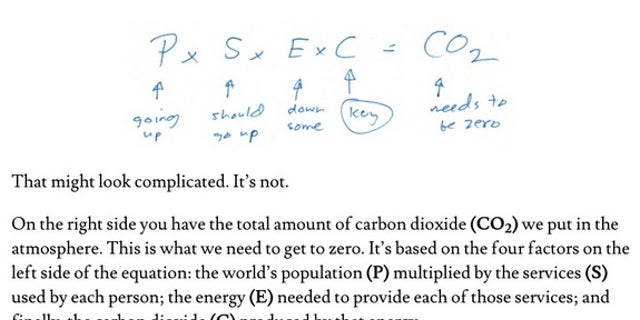 P x S x E x C = CO₂
going up should go up down some key needs to be zero
That might look complicated. It's not.
On the right side you have the total amount of carbon dioxide (CO₂) we put in the
atmosphere. This is what we need to get to zero. It's based on the four factors on the
left side of the equation: the world's population (P) multiplied by the services (S)
used by each person; the energy (E) needed to provide each of those services; and
finally, the carbon dioxide (C) produced by that energy.